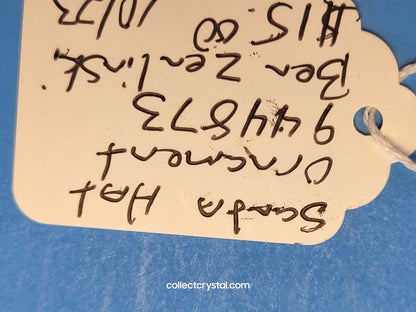 Santa Hat
Ornament
944873
Ben Zerlinski
$15.00
10/23
collectcrystal.com